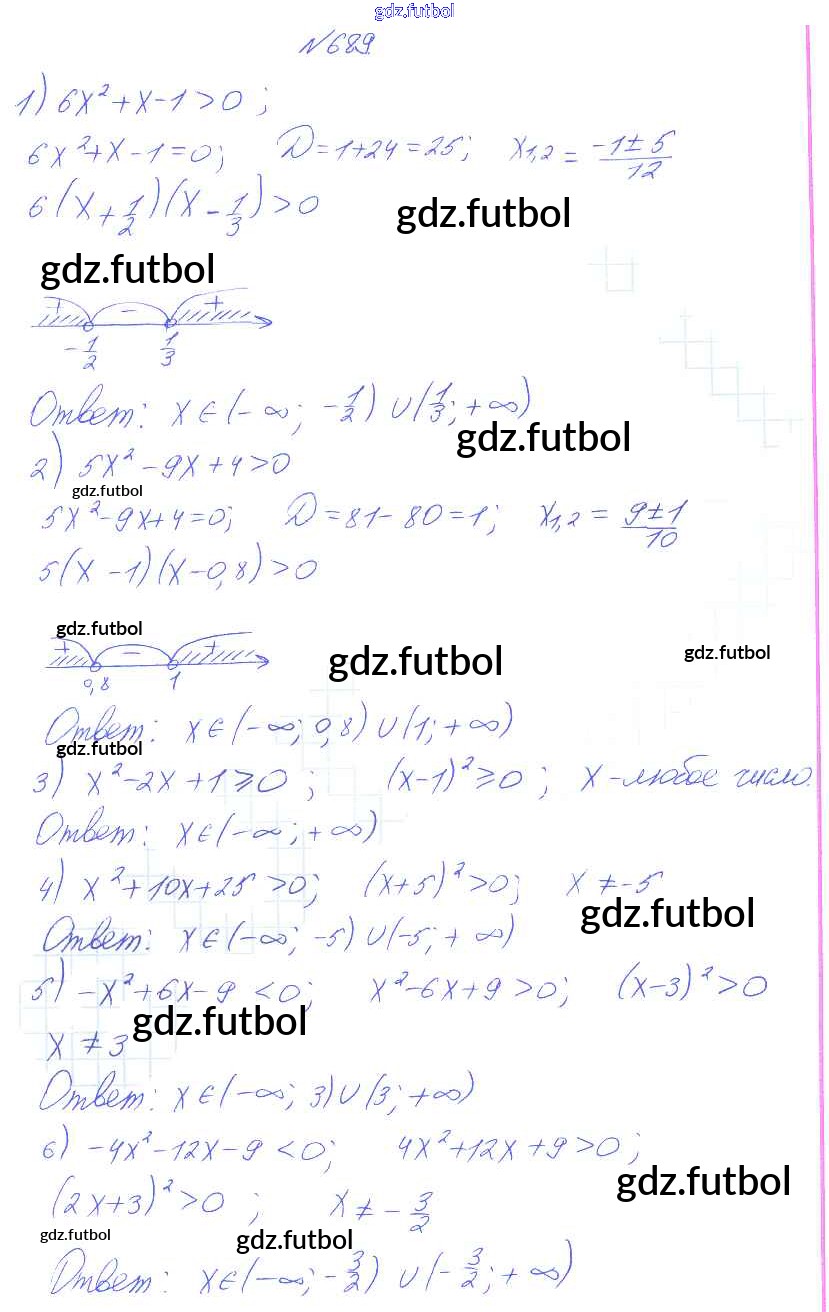 gdz.futbol
№689
1) 6x² + x - 1 > 0 ;
6x² + x - 1 = 0; D = 1 + 24 = 25; x₁,₂ = (-1 ± 5)/12
6(x + 1/2)(x - 1/3) > 0
gdz.futbol
gdz.futbol
+ - +
-1/2 1/3
Ответ: x ∈ (-∞; -1/2) ∪ (1/3; +∞)
gdz.futbol
2) 5x² - 9x + 4 > 0
gdz.futbol
5x² - 9x + 4 = 0; D = 81 - 80 = 1; x₁,₂ = (9 ± 1)/10
5(x - 1)(x - 0,8) > 0
gdz.futbol
+ - +
gdz.futbol
gdz.futbol
0,8 1
Ответ: x ∈ (-∞; 0,8) ∪ (1; +∞)
gdz.futbol
3) x² - 2x + 1 ≥ 0 ; (x - 1)² ≥ 0 ; x - любое число.
Ответ: x ∈ (-∞; +∞)
4) x² + 10x + 25 > 0; (x + 5)² > 0; x ≠ -5
gdz.futbol
Ответ: x ∈ (-∞; -5) ∪ (-5; +∞)
5) -x² + 6x - 9 < 0; x² - 6x + 9 > 0; (x - 3)² > 0
gdz.futbol
x ≠ 3
Ответ: x ∈ (-∞; 3) ∪ (3; +∞)
6) -4x² - 12x - 9 < 0; 4x² + 12x + 9 > 0;
gdz.futbol
(2x + 3)² > 0 ; x ≠ -3/2
gdz.futbol
gdz.futbol
Ответ: x ∈ (-∞; -3/2) ∪ (-3/2; +∞)